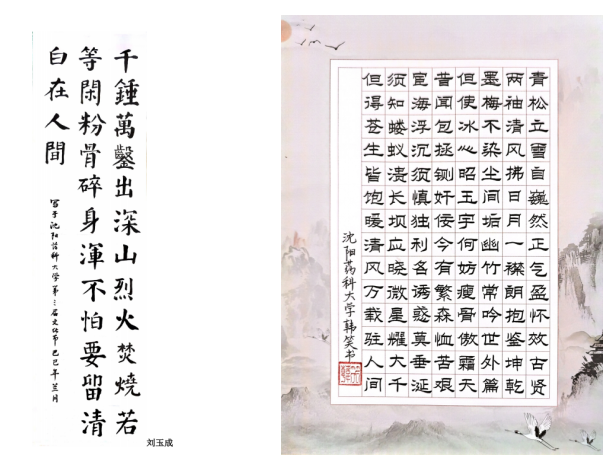 千鍾萬鑿出深山烈火焚燒若
等閑粉骨碎身渾不怕要留清
白在人間
写于沈阳药科大学第三届文化节
刘玉成
青松立雪自巍然正气盈怀效古贤
两袖清风拂日月一襟朗抱鉴坤乾
墨梅不染尘间垢幽竹常吟世外篇
但使冰心昭玉宇何妨瘦骨傲霜天
昔闻包拯铡奸佞今有繁森恤苦艰
宦海浮沉须慎独利名诱惑莫垂涎
须知蝼蚁溃长坝应晓微星耀大千
但得苍生皆饱暖清风万载驻人间
沈阳药科大学韩笑书